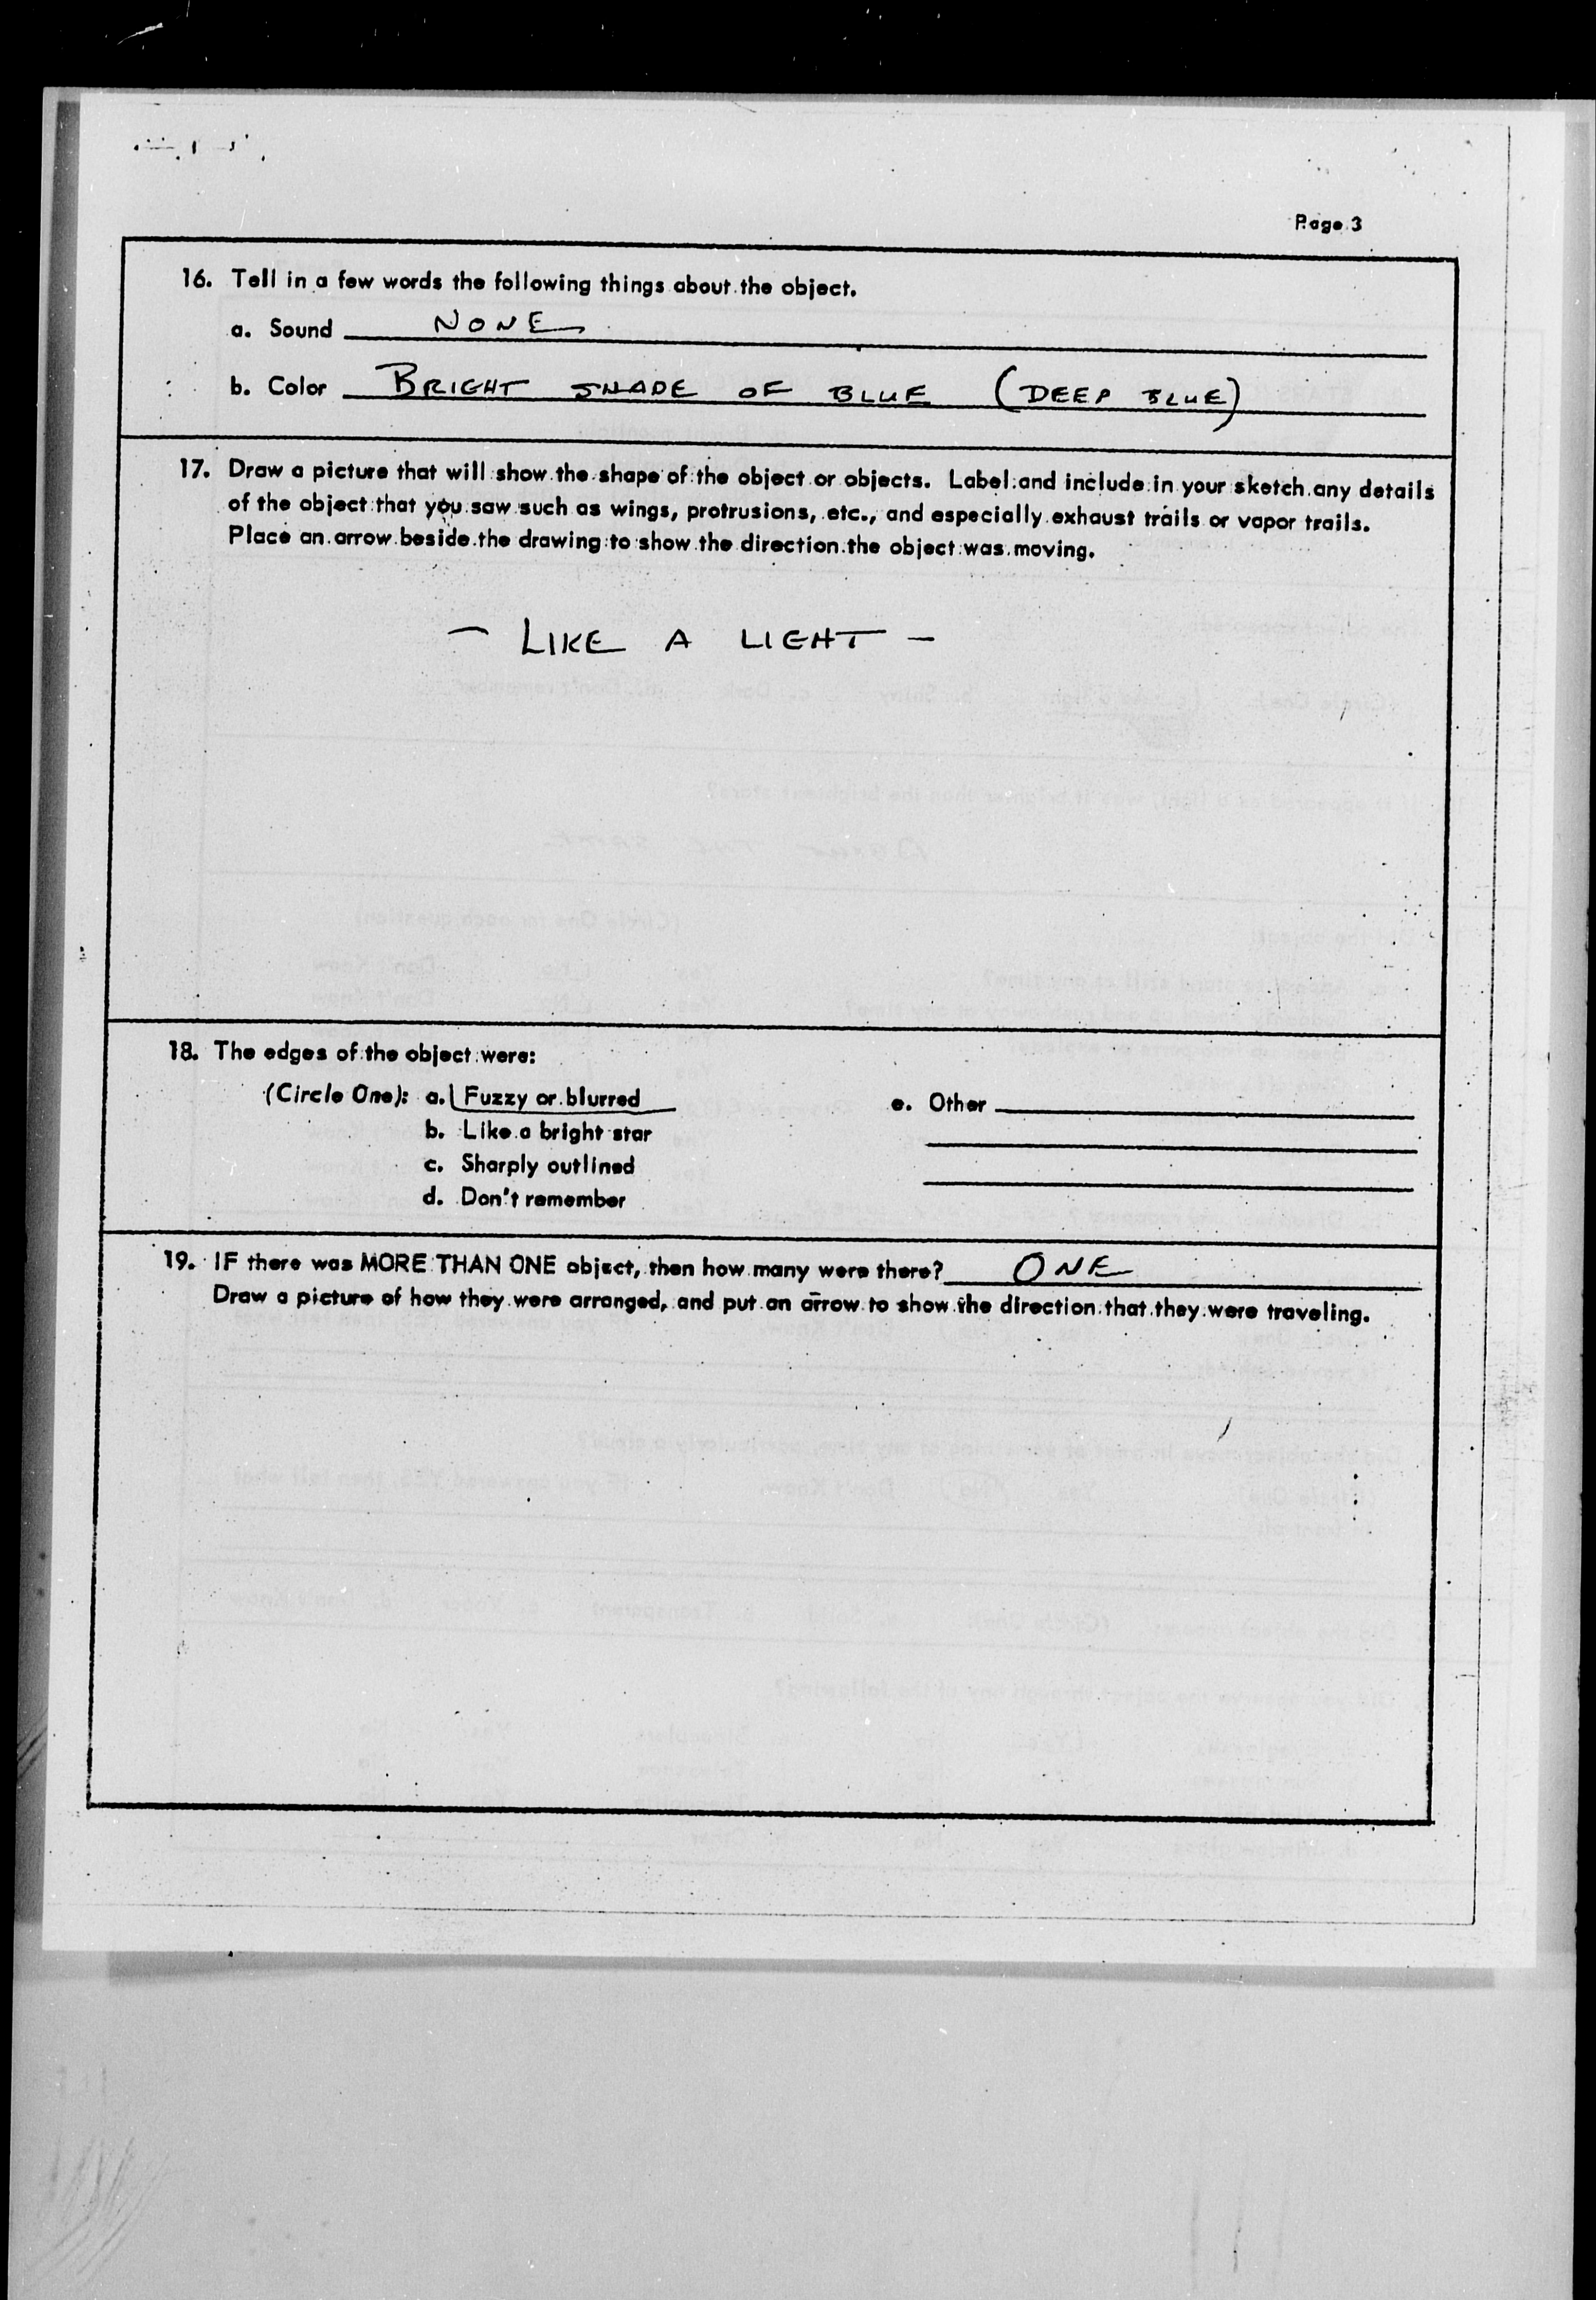 Page 3
16. Tell in a few words the following things about the object.
a. Sound NONE
b. Color BRIGHT SHADE OF BLUE (DEEP BLUE)
17. Draw a picture that will show the shape of the object or objects. Label and include in your sketch any details
of the object that you saw such as wings, protrusions, etc., and especially exhaust trails or vapor trails.
Place an arrow beside the drawing to show the direction the object was moving.
- LIKE A LIGHT -
18. The edges of the object were:
(Circle One): a. Fuzzy or blurred e. Other
b. Like a bright star
c. Sharply outlined
d. Don't remember
19. IF there was MORE THAN ONE object, then how many were there? ONE
Draw a picture of how they were arranged, and put an arrow to show the direction that they were traveling.